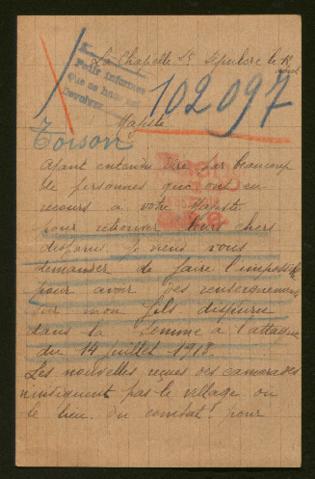 La Chapelle St Sepulcre le 18
Pedir informes
Que se ha
Devolver
102.097
Majesté
Toison
Ayant entendu dire par beaucoup
de personnes qui ont eu
recours a votre Majesté
pour retrouver leurs chers
disparus. Je viens vous
demander de faire l'impossible
pour avoir des renseignements
sur mon fils disparu
dans la Somme a l'attaque
du 14 juillet 1918.
Les nouvelles reçues des camarades
n'indiquent pas le village ou
le lieu du combat! pour